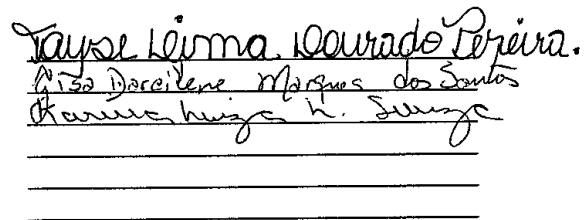 Tayse Dívma Dourado Pereira.
Darcilene Marques dos Santos
Karina Luiza L. Souza